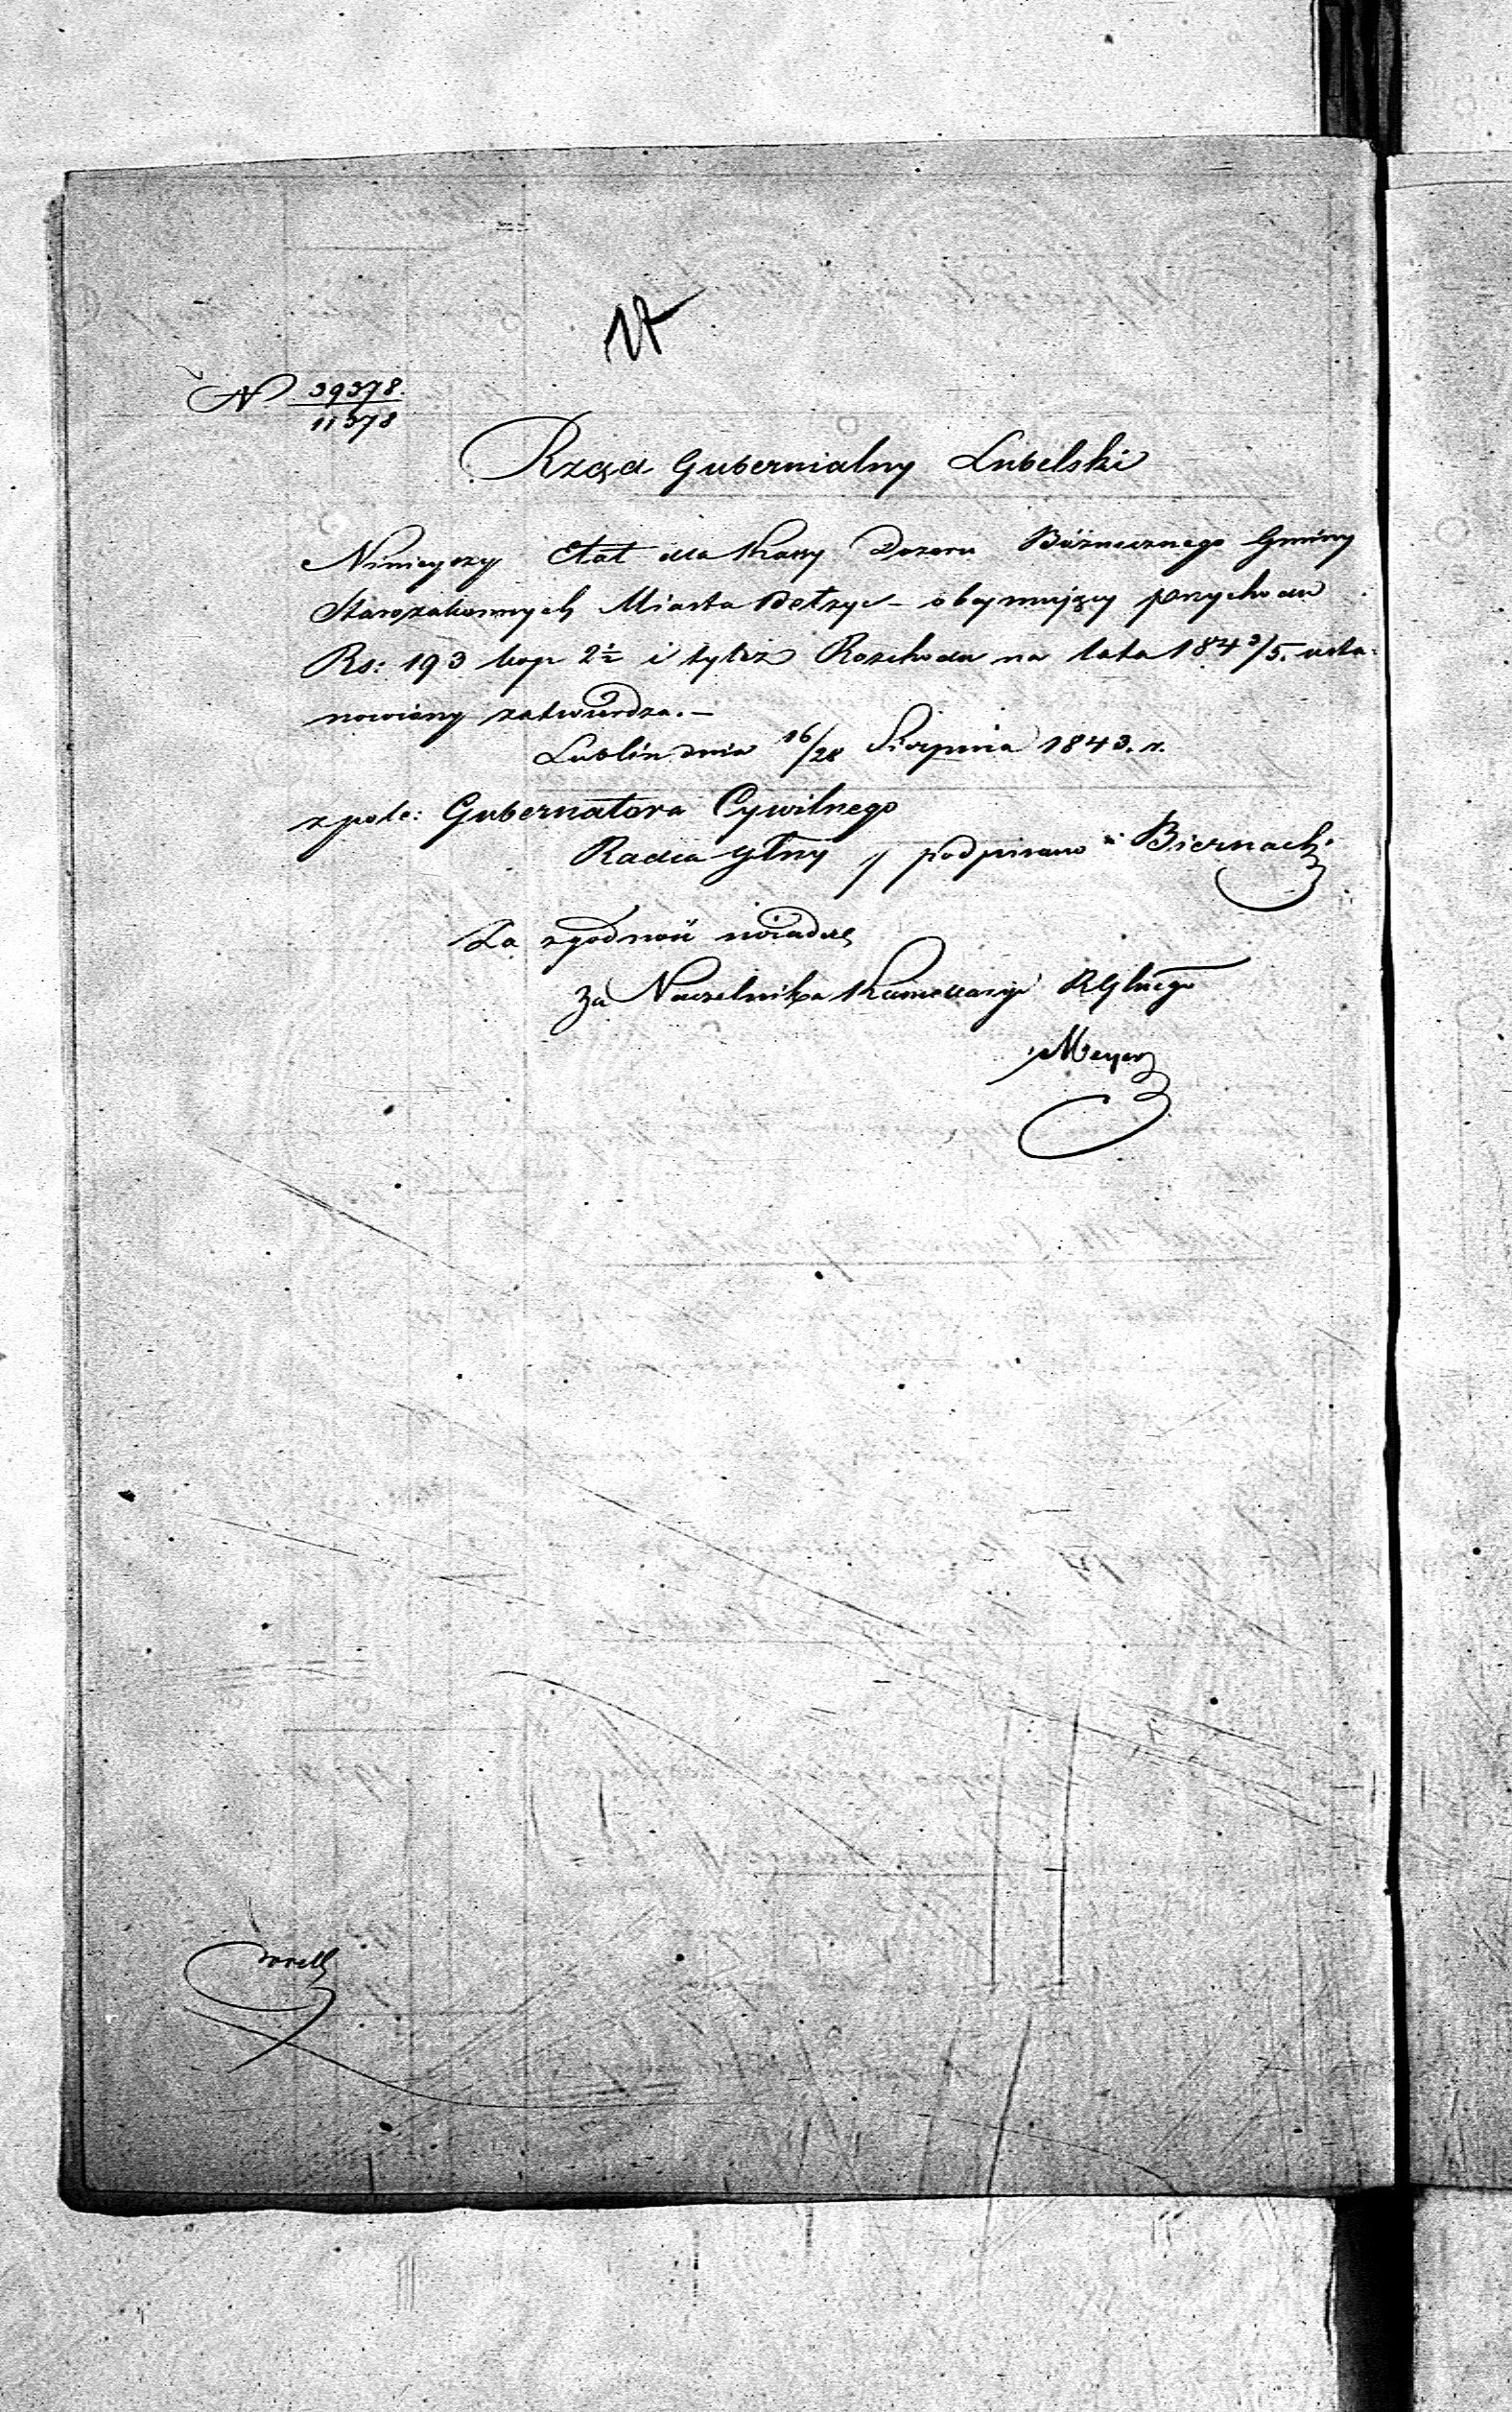 17
N 39378.
11378
Rząd Gubernialny Lubelski
Ninieyszy Etat dla Kassy Dozoru Bóżnicznego Gminy
Starozakonnych Miasta Bełzyc – obeymuiący przychodu
Rs: 193 kop 2½ i tyleż Rozchodu na lata 1843/5. usta-
nowiony zatwierdza. –
Lublin dnia 16/28 Sierpnia 1843. r.
z pole: Gubernatora Cywilnego
Radca Głny / podpisano Biernacki
Za zgodność świadczę
Za Naczelnika Kancellaryi RGlnego
Meyer